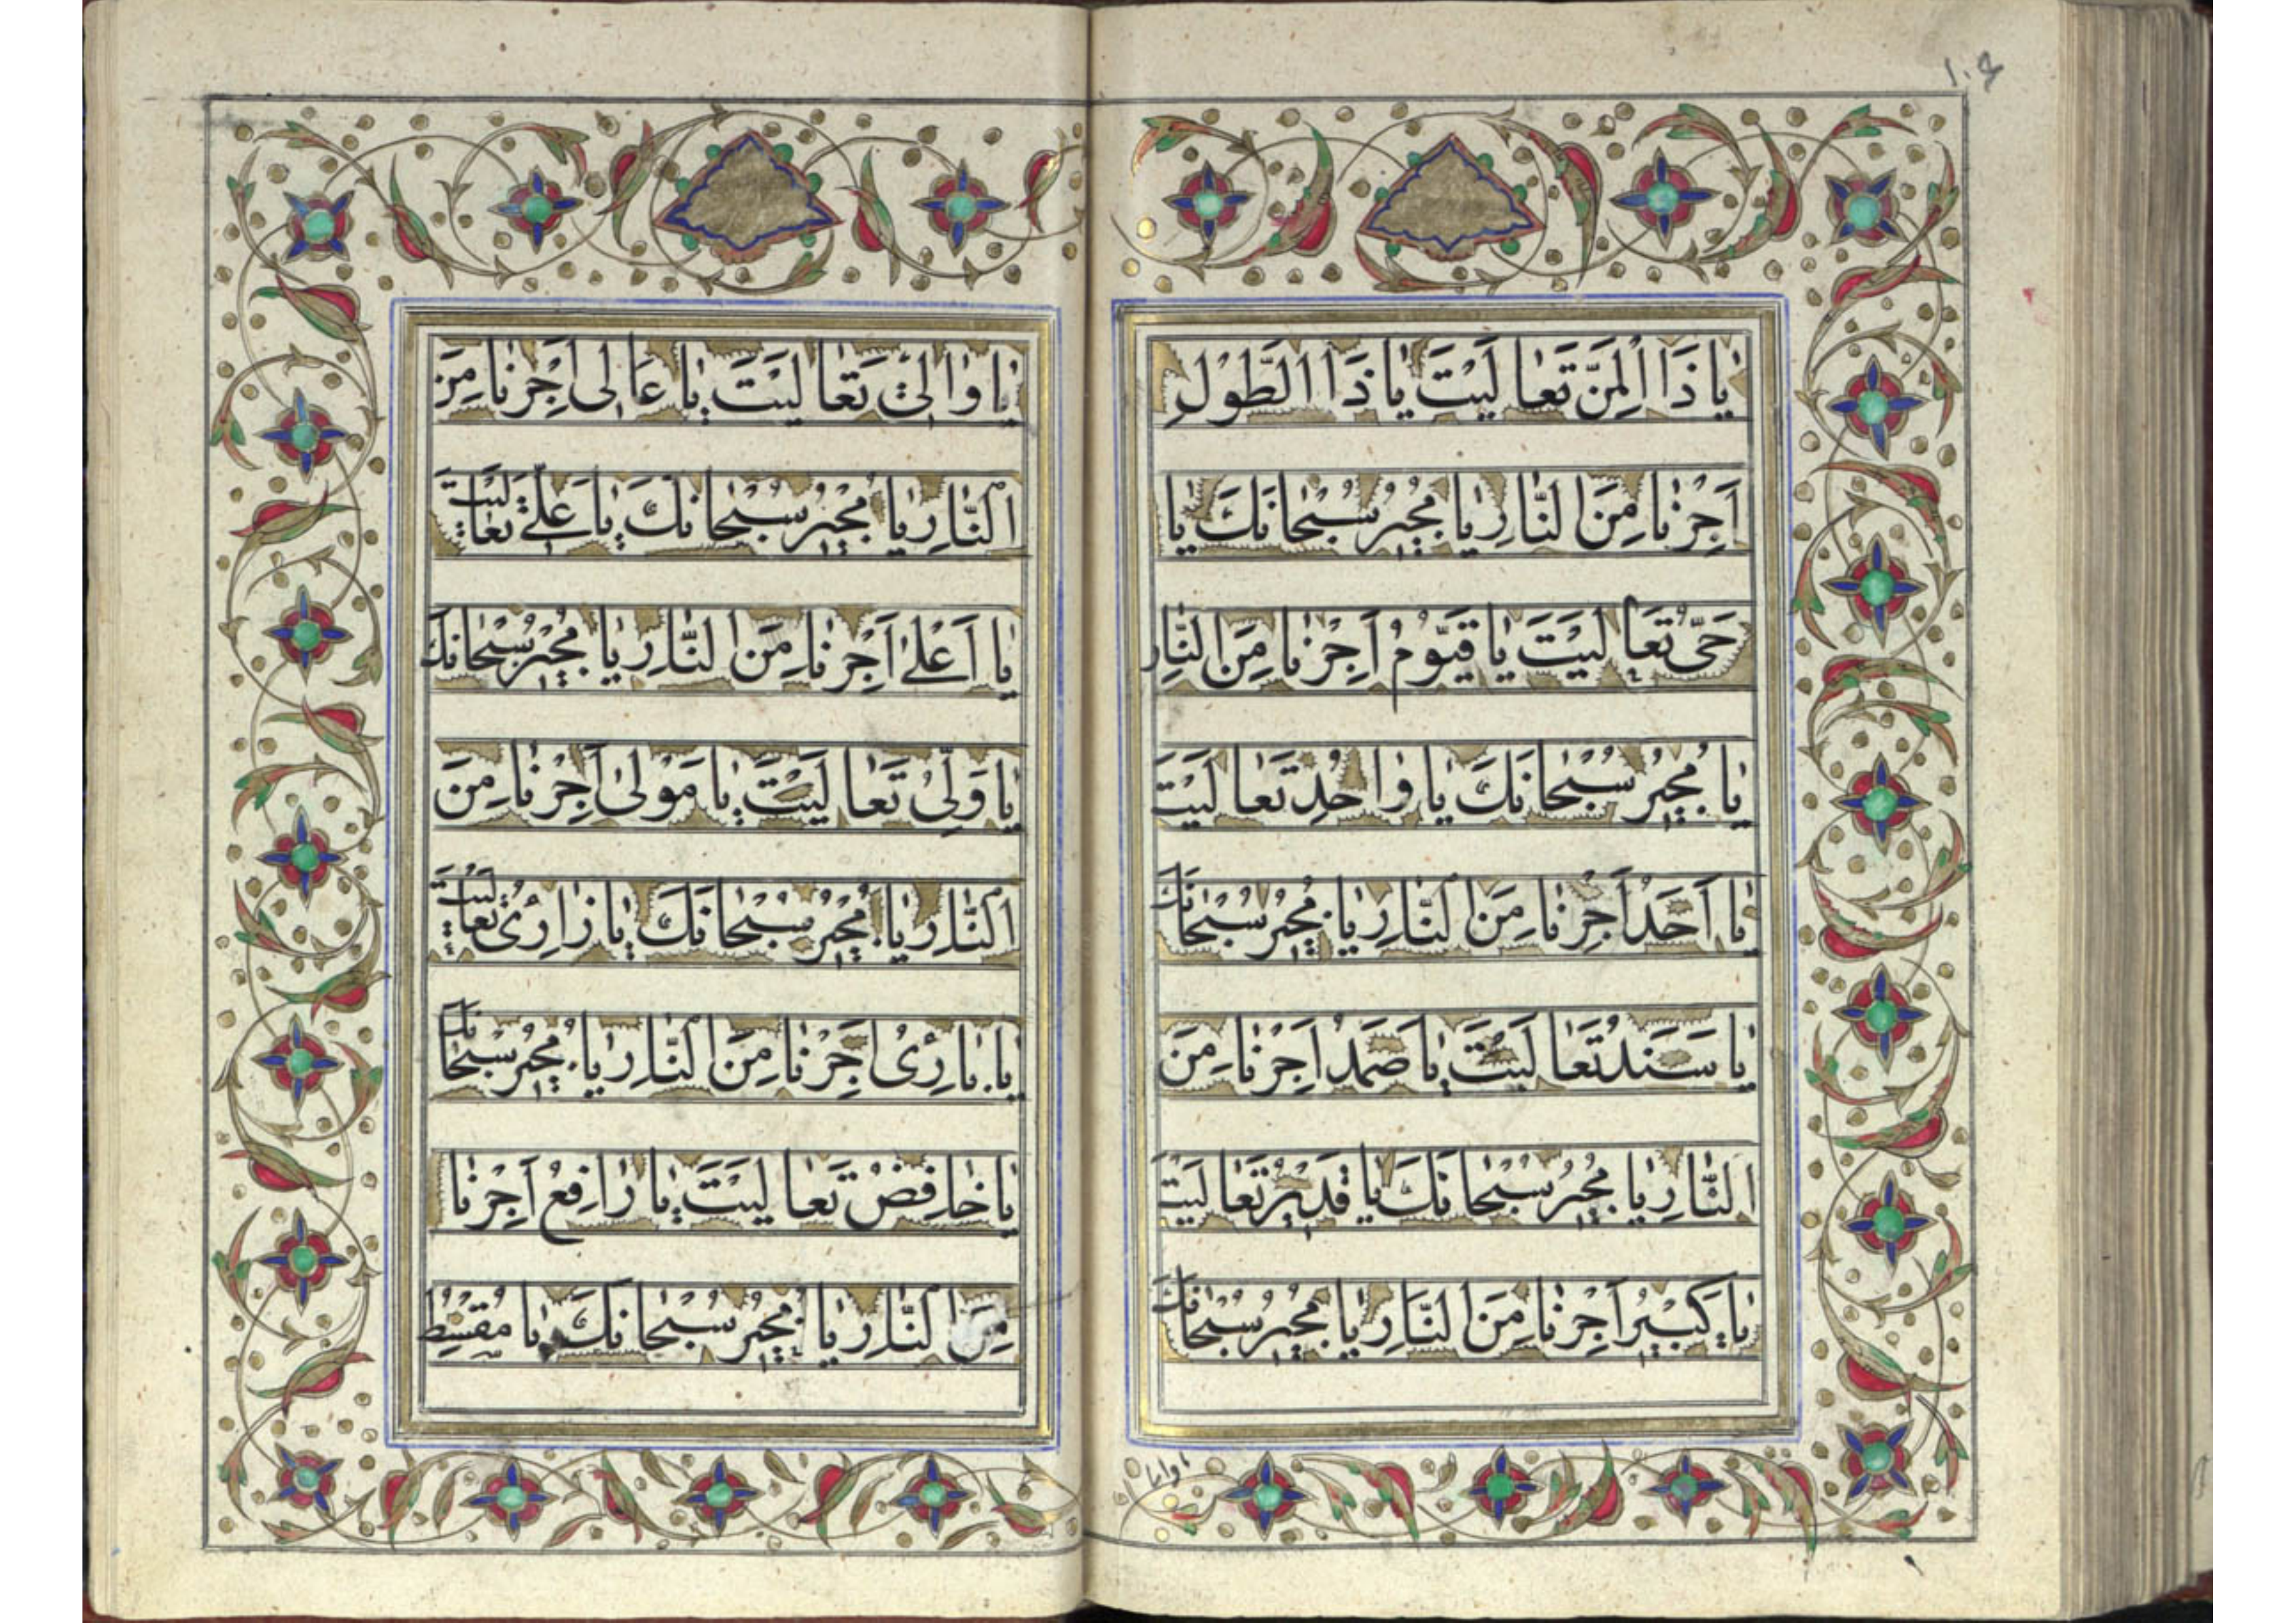 ١٠٤
يٰا ذَا الْمَنِّ تَعٰالَيْتَ يٰا ذَا الطَّوْلِ
اَجِرْنٰا مِنَ النّٰارِ يٰا مُجيٖرُ سُبْحٰانَكَ يٰا
حَىُّ تَعٰالَيْتَ يٰا قَيّوُمُ اَجِرْنٰا مِنَ النّٰارِ
يٰا مُجيٖرُ سُبْحٰانَكَ يٰا وٰاحِدُ تَعٰالَيْتَ
يٰا اَحَدُ اَجِرْنٰا مِنَ النّٰارِ يٰا مُجيٖرُ سُبْحٰانَكَ
يٰا سَنَدُ تَعٰالَيْتَ يٰا صَمَدُ اَجِرْنٰا مِنَ
النّٰارِ يٰا مُجيٖرُ سُبْحٰانَكَ يٰا قَديٖرُ تَعٰالَيْتَ
يٰا كَبيٖرُ اَجِرْنٰا مِنَ النّٰارِ يٰا مُجيٖرُ سُبْحٰانَكَ
يٰا وٰالىٖ تَعٰالَيْتَ يٰا عٰالىٖ اَجِرْنٰا مِنَ
النّٰارِ يٰا مُجيٖرُ سُبْحٰانَكَ يٰا عَلىُّ تَعٰالَيْتَ
يٰا اَعْلىٰ اَجِرْنٰا مِنَ النّٰارِ يٰا مُجيٖرُ سُبْحٰانَكَ
يٰا وَلِىُّ تَعٰالَيْتَ يٰا مَوْلىٰ اَجِرْنٰا مِنَ
النّٰارِ يٰا مُجيٖرُ سُبْحٰانَكَ يٰا ذٰارِئُ تَعٰالَيْتَ
يٰا بٰارِئُ اَجِرْنٰا مِنَ النّٰارِ يٰا مُجيٖرُ سُبْحٰانَكَ
يٰا خٰافِضُ تَعٰالَيْتَ يٰا رٰافِعُ اَجِرْنٰا
مِنَ النّٰارِ يٰا مُجيٖرُ سُبْحٰانَكَ يٰا مُقْسِطُ